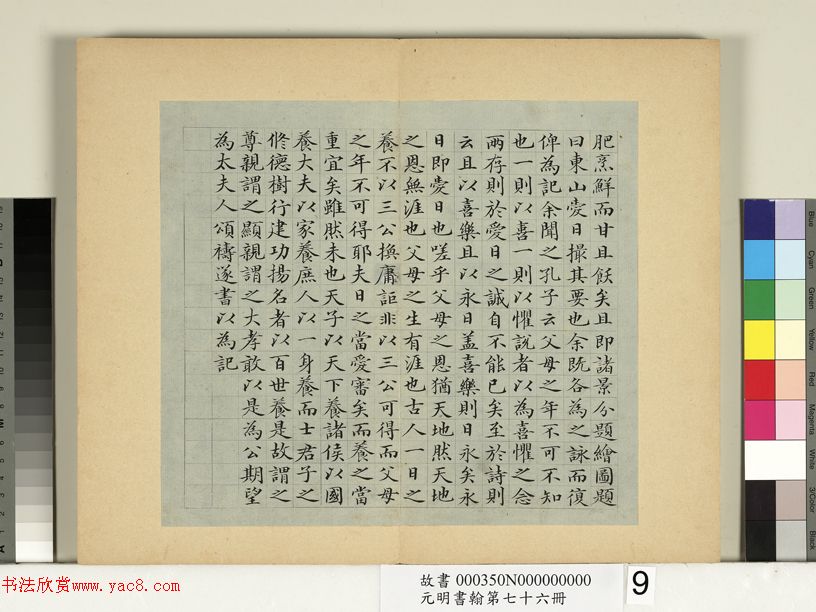 肥烹鮮而甘且飫矣且即諸景分題繪圖題
曰東山愛日撮其要也余既各為之詠而復
俾為記余聞之孔子云父母之年不可不知
也一則以喜一則以懼說者以為喜懼之念
兩存則於愛日之誠自不能已矣至於詩則
云且以喜樂且以永日蓋喜樂則日永矣永
日即愛日也嗟乎父母之恩猶天地然天地
之恩無涯也父母之生有涯也古人一日之
養不以三公換庸詎非以三公可得而父母
之年不可得耶夫日之當愛審矣而養之當
重宜矣雖然未也天子以天下養諸侯以國
養大夫以家養庶人以一身養而士君子之
脩德樹行建功揚名者以百世養是故謂之
尊親謂之顯親謂之大孝敢以是為公期望
為太夫人頌禱遂書以為記
Blue
Cyan
Green
Yellow
Red
Magenta
White
3/Color
Black
书法欣赏www.yac8.com
故書 000350N000000000
元明書翰第七十六冊
9